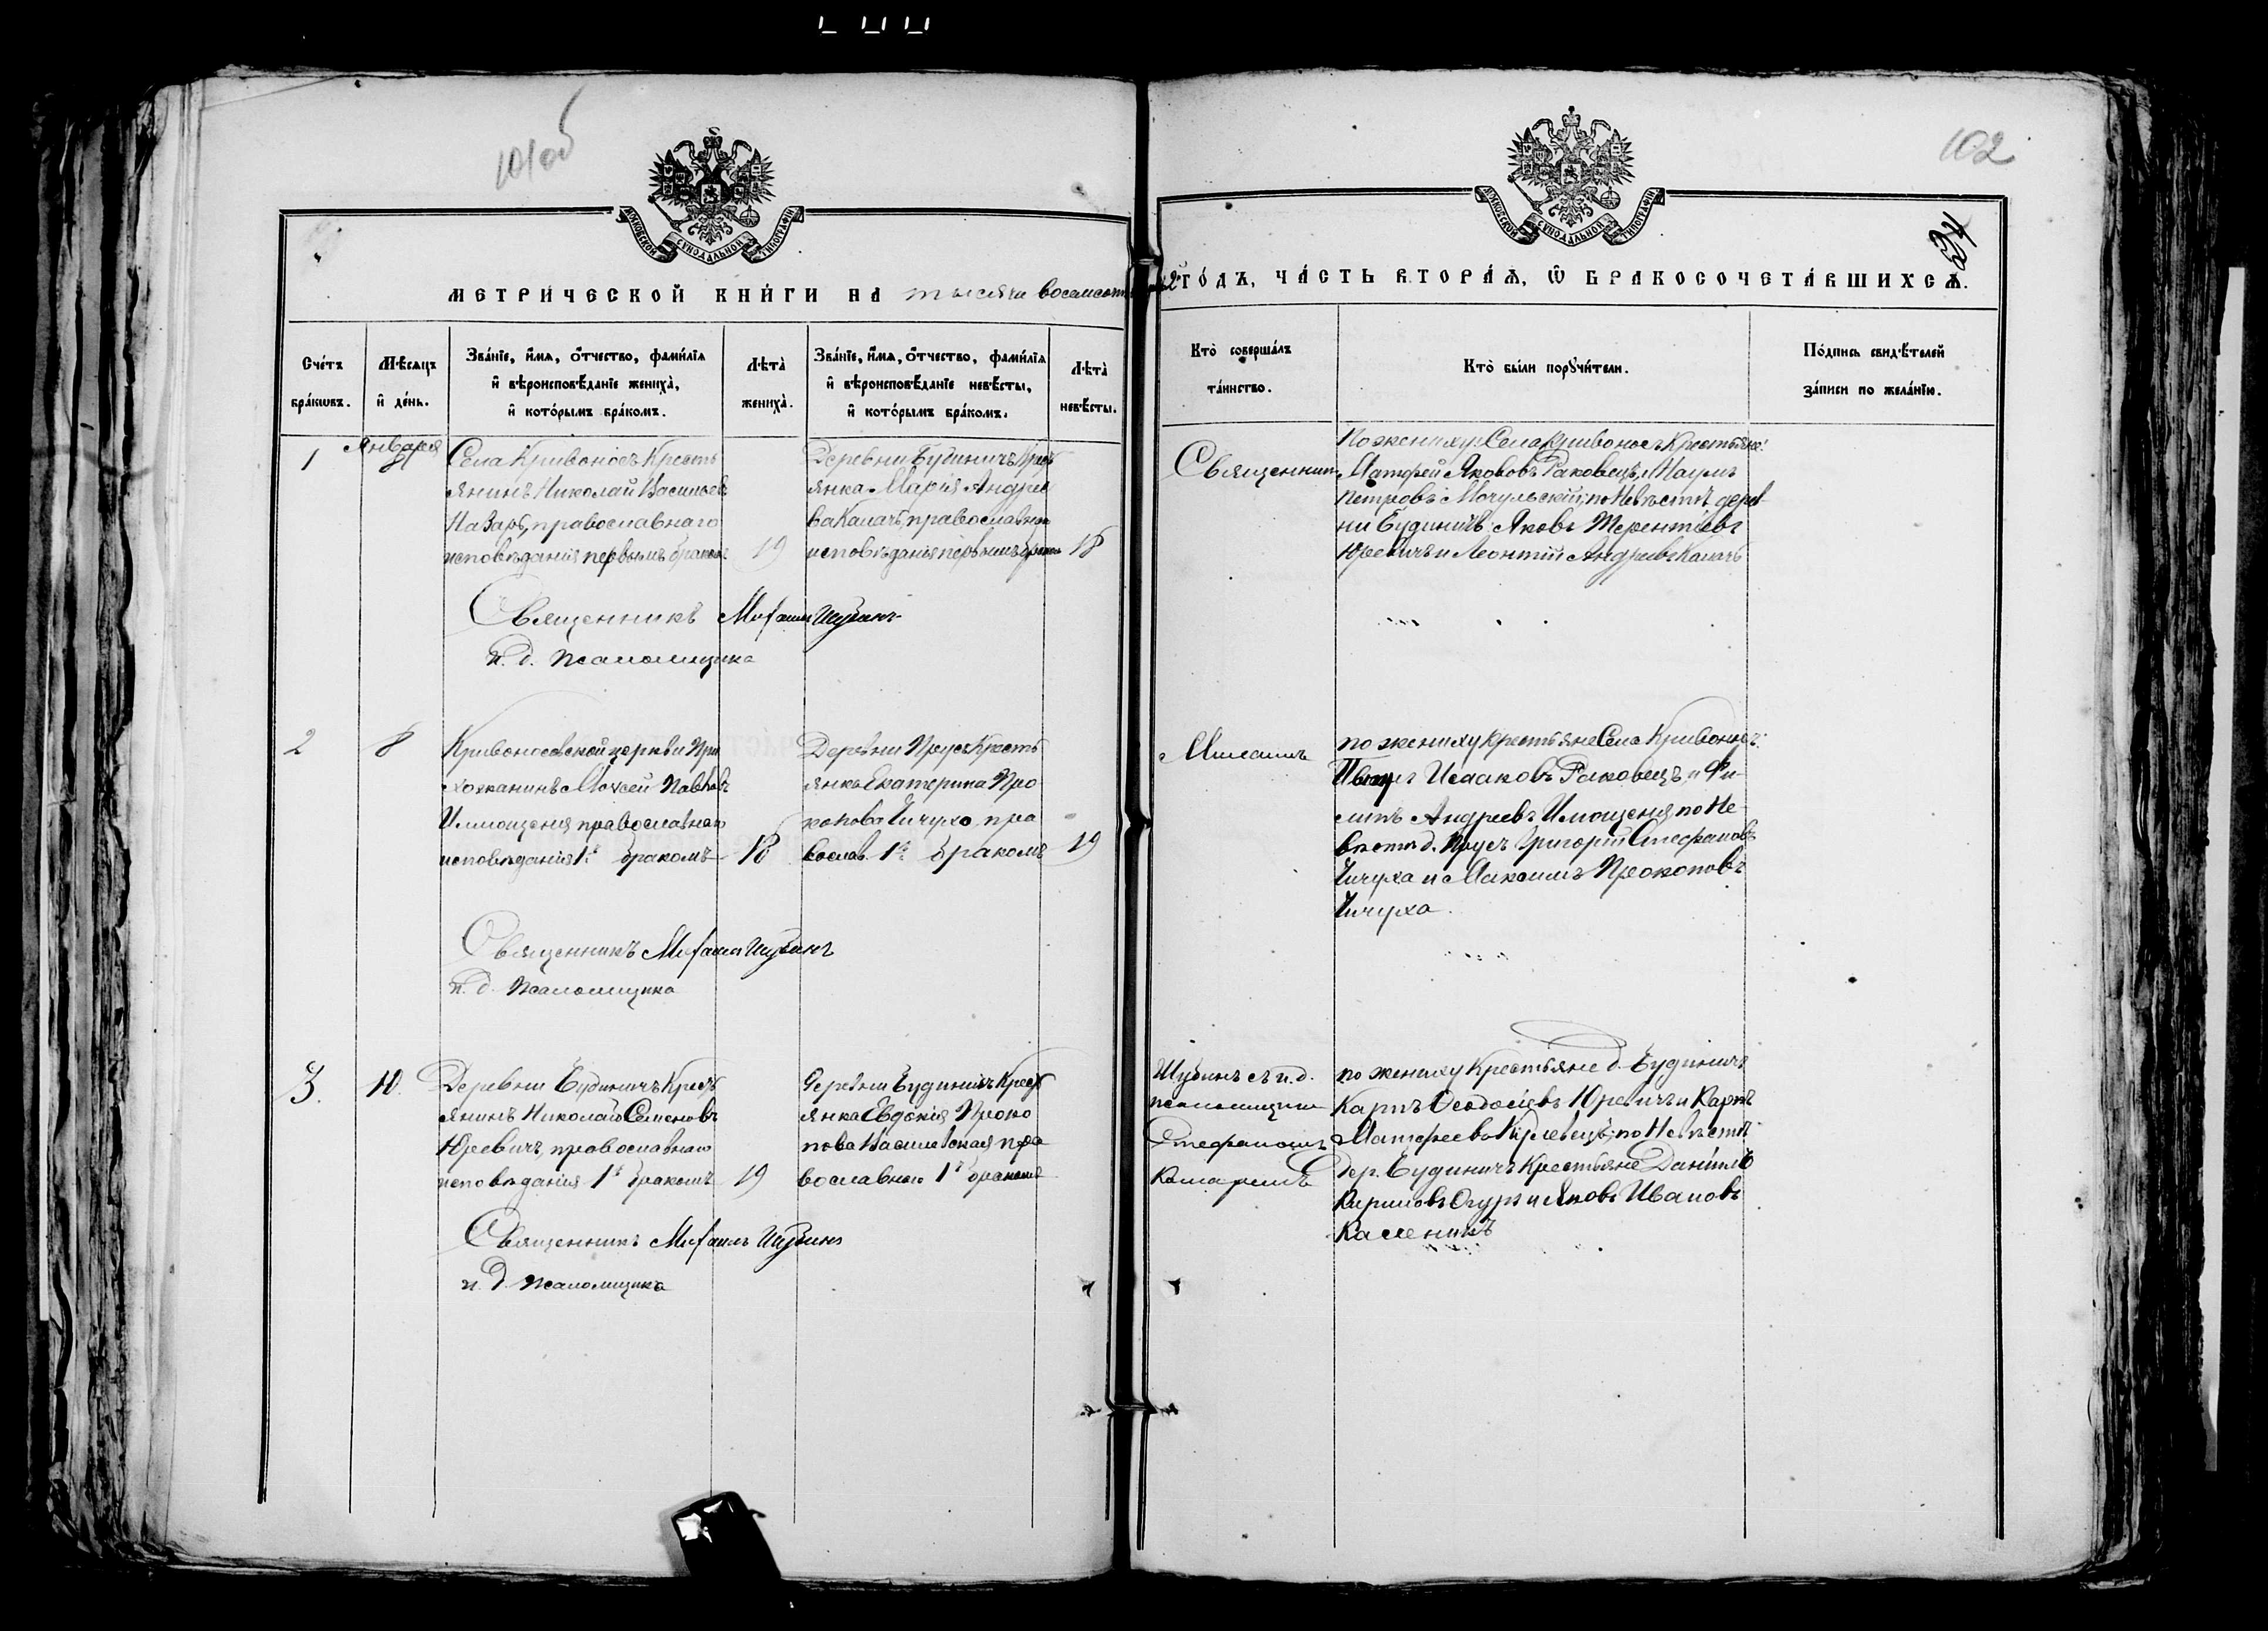 101об
102
34
МОСКОВСКОЙ СУНОДАЛЬНОЙ ТИПОГРАФІИ
МОСКОВСКОЙ СУНОДАЛЬНОЙ ТИПОГРАФІИ
МЕТРИ́ЧЕСКОЙ КНИ́ГИ НА тысяча восемсотъ
ГО́ДЪ, ЧА́СТЬ ВТОРА́Я, Ѽ БРАКОСОЧЕТА́ВШИХСЯ.
Сче́тъ
бра́кѡвъ.
Мѣ́сяцъ
и҆ де́нь.
Зва́нїе, и҆́мя, ѻ҆́тчество, фами́лїя
и҆ вѣроисповѣ́данїе жениха̀,
и҆ кото́рымъ бра́комъ.
Лѣ́та̀
жениха̀.
Зва́нїе, и҆́мя, ѻ҆́тчество, фами́лїя
и҆ вѣроисповѣ́данїе невѣ́сты,
и҆ кото́рымъ бра́комъ.
Лѣ́та̀
невѣ́сты.
Кто̀ соверша́лъ
та́инство.
Кто̀ бы́ли порꙋчи́тели.
По́дпись свидѣ́телей
за́писи по жела́нїю.
1
Января
8
Села Кривоносъ Кресть
янинъ Николай Васильевъ
Назаръ, православнаго
исповѣданія первымъ бракомъ
19
Деревни Будиничъ Крест
янка Марія Андрее
ва Калачъ, православнаго
исповѣданія первымъ бракомъ
18
Священникъ
По жениху: Села Кривоносъ Крестьяне:
Матфей Яковъ Раковецъ, и Наумъ
Петровъ Мочульскій; по Невѣстѣ дерев
ни Будиничъ Яковъ Терентіевъ
Юревичъ и Леонтій Андреевъ Калачъ
Священникъ Михаилъ Шубинъ
и. д. псаломщика
2
8
Кривоносовской церкви При
хожанинъ Моисей Павловъ
Имшеня православнаго
исповѣданія 1ъ бракомъ
18
Деревни Прусъ Кресть
янка Екатерина Про
копова Чичуха пра
вослав. 1ъ бракомъ
19
Михаилъ
по жениху крестьяне Села Кривоносъ:
Исааковъ Раковецъ, и Фи-
липъ Андреевъ по Не
вѣстѣ д. Прусъ Григорій Стефановъ
Чичуха и Максимъ Прокоповъ
Чичуха.
Священникъ Михаилъ Шубинъ
и. д. псаломщика
3.
10.
Деревни Будиничъ Крест
янинъ Николай Семеновъ
Юревичъ, православнаго
исповѣданія 1ъ бракомъ
19
деревни Будиничъ Крест
янка Евдокія Проко
пова Василевская пра
вославнаго 1ъ бракомъ
Шубинъ съ и. д.
псаломщика
Стефаномъ
Комаремъ
по жениху Крестьяне д. Будиничъ
Карпъ Ѳеодосіевъ Юревичъ и Карпъ
Матфеевъ по Невѣстѣ
дер. Будиничъ Крестьяне Даніилъ
Кириловъ Огуръ и Яковъ Ивановъ
Касеникъ
Священникъ Михаилъ Шубинъ
и. д. псаломщика